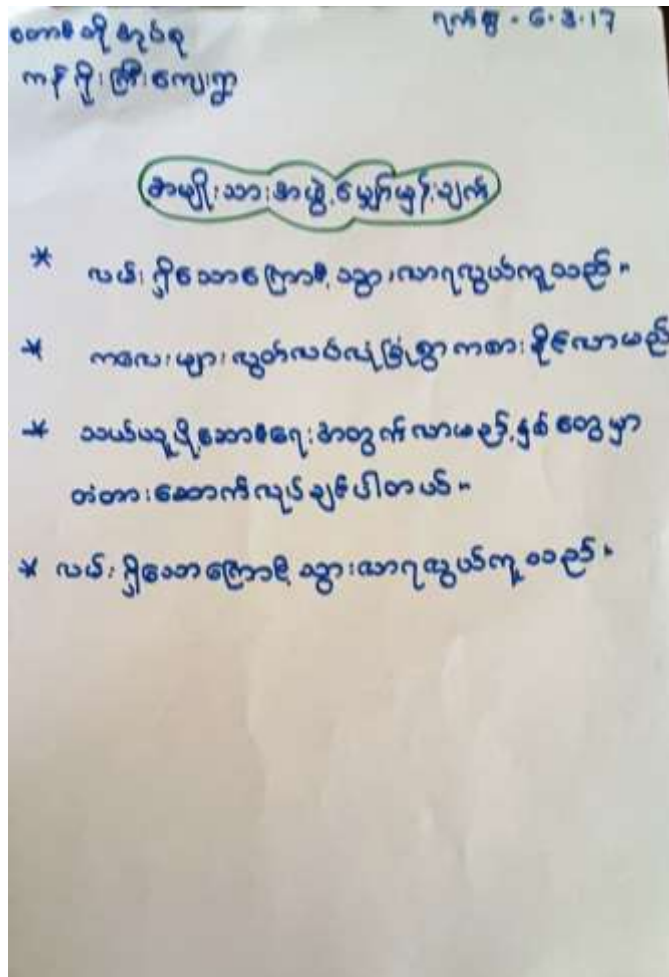 တောင်သို့အုပ်စု
ရက်စွဲ - 6.3.17
ကန်ကိုးကြီးကျေးရွာ
အမျိုးသားအဖွဲ့မျှော်မှန်းချက်
* လမ်းရှိသောကြောင့် သွားလာရလွယ်ကူသည်။
* ကလေးများလွတ်လပ်လုံခြုံစွာကစားနိုင်လာမည်
* သယ်ယူပို့ဆောင်ရေးအတွက်လာမည့်နှစ်တွေမှာ
တံတားဆောက်လုပ်ချင်ပါတယ်။
* လမ်းရှိသောကြောင့် သွားလာရလွယ်ကူသည်။